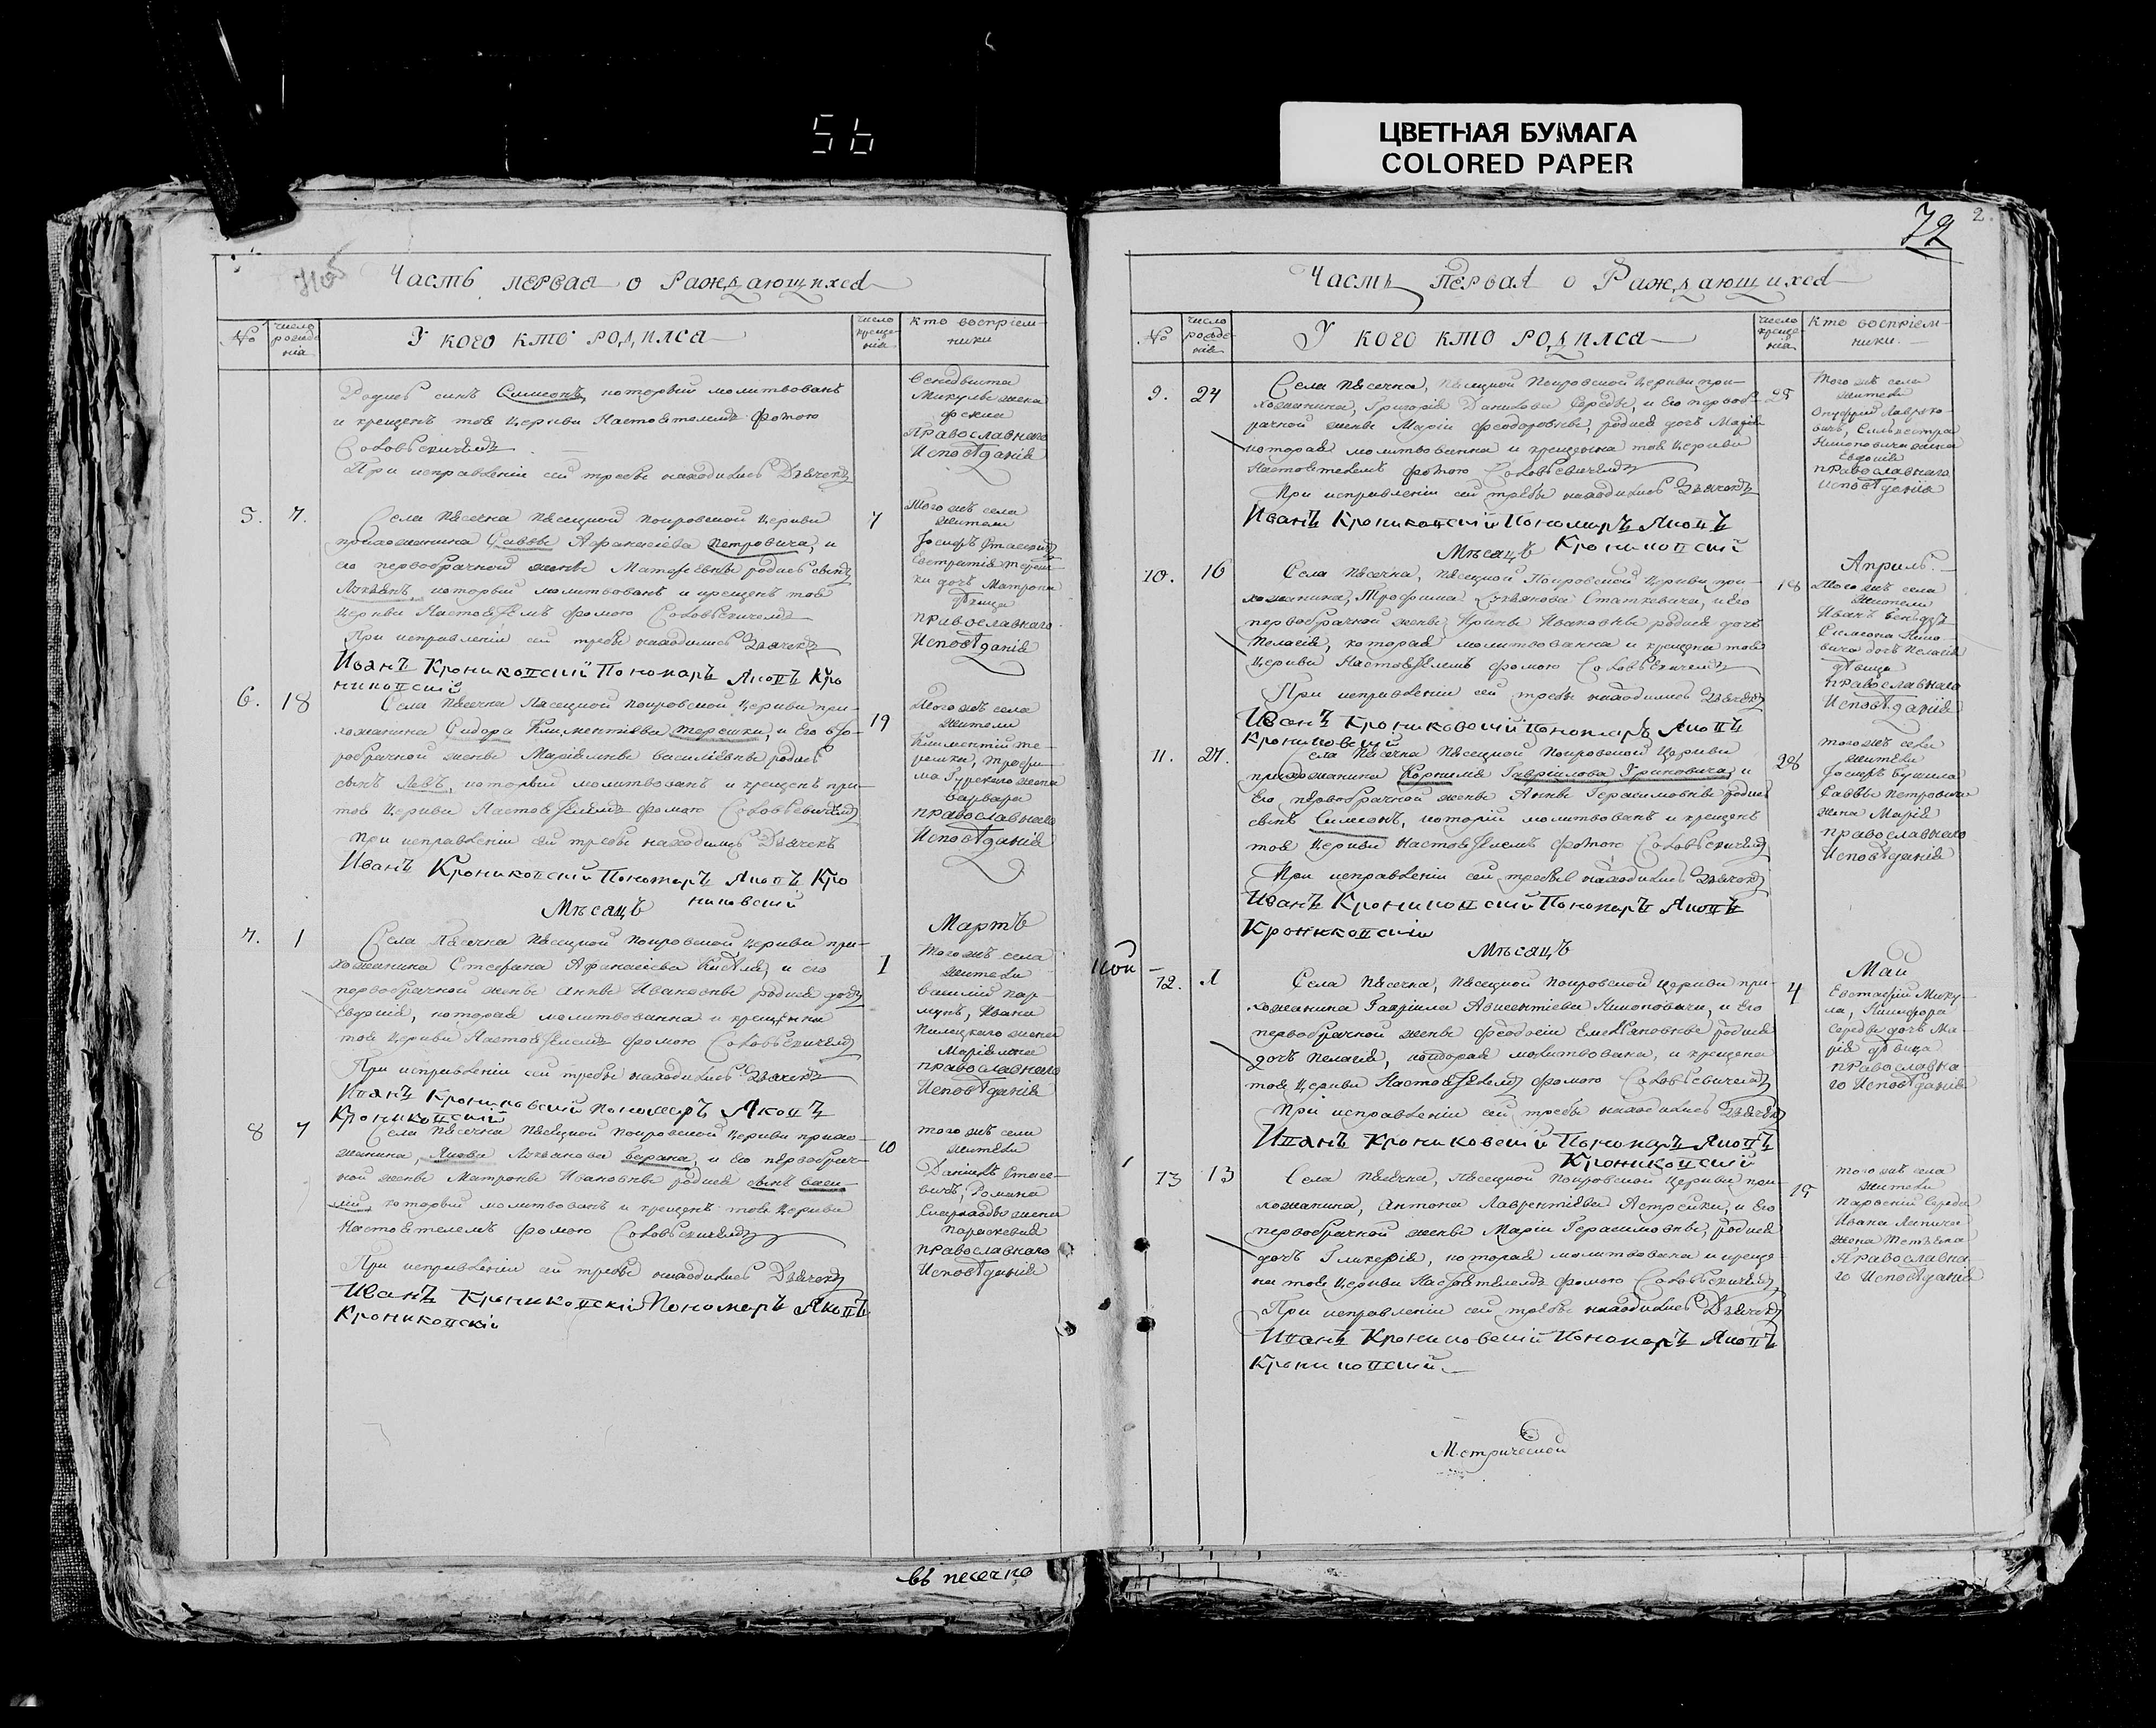 56
ЦВЕТНАЯ БУМАГА
COLORED PAPER
Часть первая о Раждающихся
№
число рожде нія
У кого кто родился
число креще нія
кто воспріем-
ники
Родися сынъ Симеонъ, который молитвованъ
и крещенъ тоя Церкви Настоятелемъ Фомою
При исправленіи сей требы находились Дьячекъ
Микулы жена
Фекла
Православнаго
Исповѣданія
5. 7.
Села Пѣсечна Пѣсецкой Покровской Церкви
прихожанина Саввы Афанасіева Петровича, и
его первобрачной жены Матфеевны родися сынъ
Лукіанъ, который молитвованъ и крещенъ тоя
Церкви Настоятелемъ Фомою
При исправленіи сей требы находились Дьячекъ
Иванъ Крониковскій Пономаръ Яковъ Кро
никовскій
7
Того жъ села
жители
дочъ Матрона
дѣвица
православнаго
Исповѣданія
6. 18
Села Пѣсечна Пѣсецкой Покровской Церкви при-
хожанина Сидора Климентіева Терешки, и его вто-
робрачной жены Маріямны Василіевны родися
сынъ Левъ, который молитвованъ и крещенъ при
тоя Церкви Настоятелемъ Фомою
При исправленіи сей требы находились Дьячекъ
Иванъ Крониковскій Пономаръ Яковъ Кро
никовскій
19
Того жъ села
жители
Климентій Те-
решка, Трофи-
ма Гурскаго жена
Варвара
православнаго
Исповѣданія
Мѣсяцъ
Мартъ
7. 1
Села Пѣсечна Пѣсецкой Покровской Церкви при-
хожанина Стефана Афанасіева и его
первобрачной жены Анны Ивановны родися дочъ
Евдокія, которая молитвованна и крещенна
тоя Церкви Настоятелемъ Фомою
При исправленіи сей требы находились Дьячекъ
Иванъ Крониковскій Пономаръ Яковъ
Крониковскій
1
Того жъ села
жители
Василій Пар-
Ивана
Пилецкаго жена
Маріямна
православнаго
Исповѣданія
8 7
Села Пѣсечна Пѣсецкой Покровской Церкви прихо-
жанина, Якова Лукіанова Барана, и его первобрач-
ной жены Матроны Ивановны родися сынъ Васи-
лій который молитвованъ и крещенъ тоя Церкви
Настоятелемъ Фомою
При исправленіи сей требы находились Дьячекъ
Иванъ Крониковскій Пономаръ Яковъ
Крониковскій
10
того жъ села
жители
Даніилъ Стасе-
вичъ, Романа
жена
Параскевія
православнаго
Исповѣданія
въ песечно
72
2.
Часть Первая о Раждающихся
№
число рожде нія
У кого кто родился
число креще нія
Кто воспріем-
ники.
9. 24
Села Пѣсечна, Пѣсецкой Покровской Церкви при-
хожанина, Григорія Данилова Середы, и Его первоб-
рачной жены Маріи Феодоровны, родися дочъ Марія
которая молитвованна и крещенна тоя Церкви
Настоятелемъ Фомою
При исправленіи сей требы находились Дьячекъ
Иванъ Крониковскій Пономаръ Яковъ
Крониковскій
25
Того жъ села
жители
жена
Евдокія
православнаго
Исповѣданія
Мѣсяцъ
Априль.
10. 16
Села Пѣсечна, Пѣсецкой Покровской Церкви при-
хожанина, Трофима Лукіянова Статкевича, и Его
первобрачной жены Ирины Ивановны родися дочъ
Пелагія, которая молитвованна и крещена тоя
Церкви Настоятелемъ Фомою
При исправленіи сей требы находились Дьячекъ
Иванъ Крониковскій Пономаръ Яковъ
Крониковскій
18
Того жъ села
жители
Иванъ
Симеона
дочъ Пелагія
дѣвица
православнаго
Исповѣданія
11. 27.
Села Пѣсечна Пѣсецкой Покровской Церкви
прихожанина Корнила Гавріилова Гриновича, и
Его первобрачной жены Анны Герасимовны родися
сынъ Симеонъ, который молитвованъ и крещенъ
тоя Церкви Настоятелемъ Фомою
При исправленіи сей требы находились Дьячекъ
Иванъ Крониковскій Пономаръ Яковъ
Крониковскій
28
того жъ села
жители
Саввы Петровича
жена Марія
православнаго
Исповѣданія
Мѣсяцъ
Май
12.
Села Пѣсечна, Пѣсецкой Покровской Церкви при-
хожанина Гавріила и Его
первобрачной жены Феодосіи родися
дочъ Пелагія, которая молитвована, и крещена
тоя Церкви Настоятелемъ Фомою
При исправленіи сей требы находились Дьячекъ
Иванъ Крониковскій Пономаръ Яковъ
Крониковскій
4
Евстафій Мику-
ла, Никифора
Середы дочъ Ма-
рія дѣвица
православна-
го Исповѣданія
13 13
Села Пѣсечна, Пѣсецкой Покровской Церкви при-
хожанина, Антона Лаврентіева Ястрейки, и Его
первобрачной жены Маріи Герасимовны, родися
дочъ Гликерія, которая молитвована и креще-
на тоя Церкви Настоятелемъ Фомою
При исправленіи сей требы находились Дьячекъ
Иванъ Крониковскій Пономаръ Яковъ
Крониковскій
15
того жъ села
жители
Середа
Ивана
жена Татьяна
Православна
го Исповѣданія
Метрической